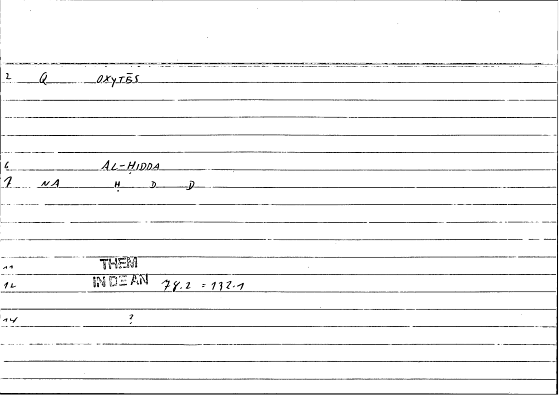 2 Q OXYTĒS
6 AL-ḤIDDA
7 NA Ḥ D D
11 THEM
12 IN DE AN 78.2 = 132.1
14 ?